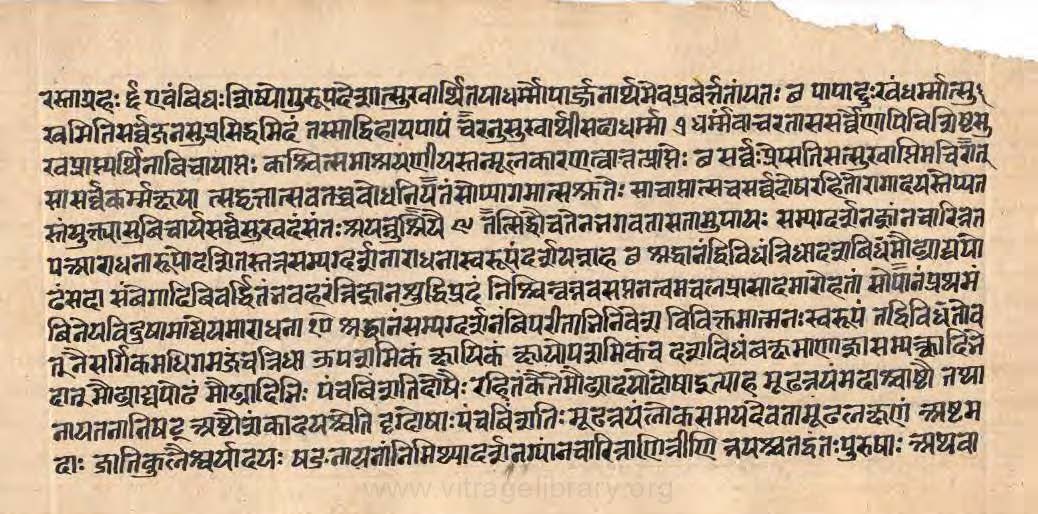 रस्ताग्रहः ८ एवंविधः शिष्योगुरूपदेशात्सुखार्थितयाधर्मोपार्जनार्थमेवप्रवर्त्ततांयतः ब पापाद्दुःखंधर्मात्सु
खमितिसर्वजनसुप्रसिद्धमिदं तस्माद्विहायपापं चरतुसुखार्थीसदाधर्मं ए धर्मंवाचरतासर्व्वेणापिविशिष्टसु
खप्राप्त्यर्थिनाविचार्याप्तः कश्चित्समाश्रयणीयस्तन्मूलकारणत्वात्तत्प्राप्तेः ब सर्वः प्रेप्सतिसत्सुखाप्तिमचिरात्
सासर्वकर्मक्षया त्सद्वृत्तात्सचतच्चबोधनियतंसोप्यागमात्सश्रुतेः साचाप्तात्सचसर्वदोषरहितोरागादयस्तेप्यत
स्तंयुक्त्यासुविचार्यसर्वसुखदंसंतःश्रयन्तुश्रियै ९ तत्सिद्धौचतेनभगवतासतामुपायः सम्यग्दर्शनज्ञानचारित्रत
पआराधनारूपोदर्शितस्तत्रसम्यग्दर्शनाराधनास्वरूपंदर्शयन्नाह ब श्रद्धानंद्विविधंत्रिधादशविधंमौढ्याद्यपो
ढंसदा संवेगादिविवर्द्धितंभवहरंत्र्यज्ञानशुद्धिप्रदं निश्चिन्वन्नवसप्ततत्वमचलप्रासादमारोहतां सोपानंप्रथमं
विनेयविदुषामाद्येयमाराधना १० श्रद्धानंसम्यग्दर्शनंविपरीताभिनिवेश विविक्तमात्मनःस्वरूपं तद्विविधंतोव
तुनैसर्गिकमधिगमजंचत्रिधा उपशमिकं क्षायिकं क्षायोपशमिकंच दशविधंवक्ष्यमाणाज्ञासम्यक्त्वादिभे
दात् मौढ्याद्यपोढं मौढ्यादिभिः पंचविंशतिदोषैः रहितंकेतेमौढ्यादयोदोषाइत्याह मूढत्रयंमदाश्चाष्टौ तथा
नायतनानिषट् अष्टौशंकादयश्चेति दृग्दोषाःपंचविंशतिः मूढत्रयंलोकसमयदेवतामूढलक्षणं अष्टम
दाः जातिकुलैश्वर्यादयः षडनायतनानिमिथ्यादर्शनज्ञानचारित्राणित्रीणि त्रयश्चतद्वंतःपुरुषाः अथवा
www.vitragelibrary.org